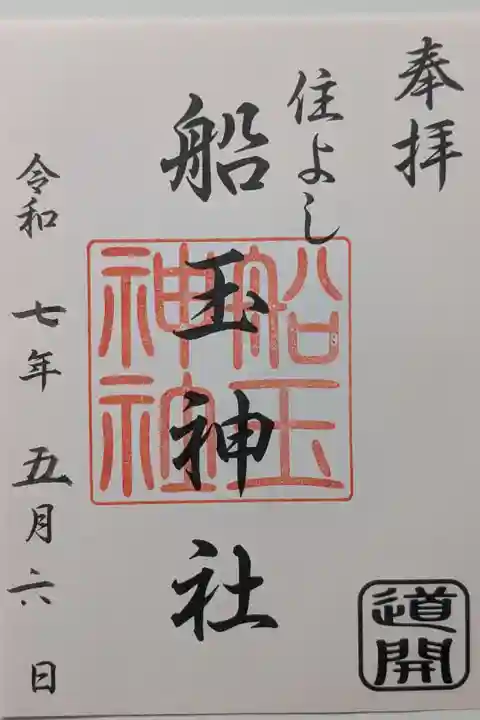 奉拝
住よし
船玉神社
船玉
神社
令和 七年 五月 六 日
道開